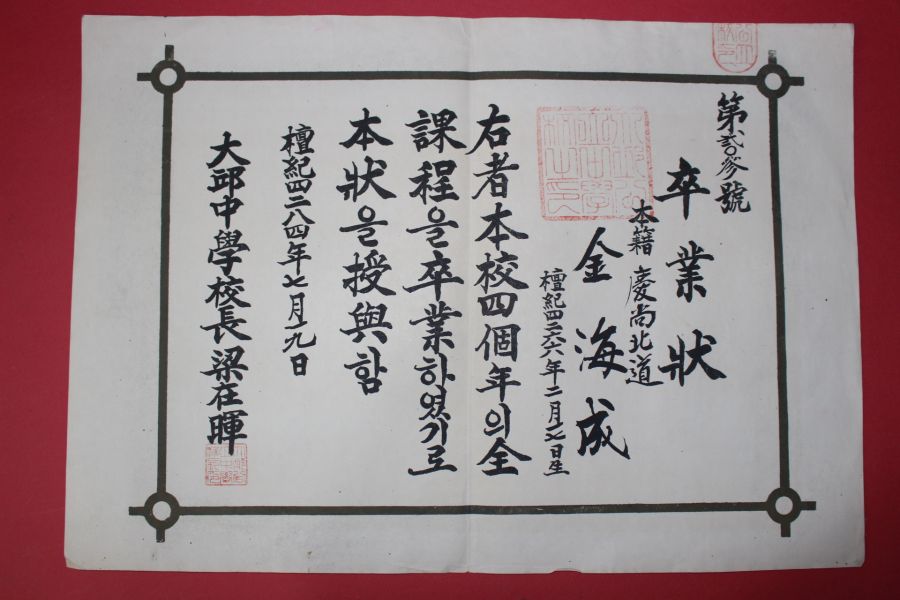 第貳〇參號
卒業狀
本籍 慶尚北道
金海成
檀紀四二六六年二月十七日生
右者本校四個年의全
課程을卒業하였기로
本狀을授與함
檀紀四二八四年七月十九日
大邱中學校長梁在暉